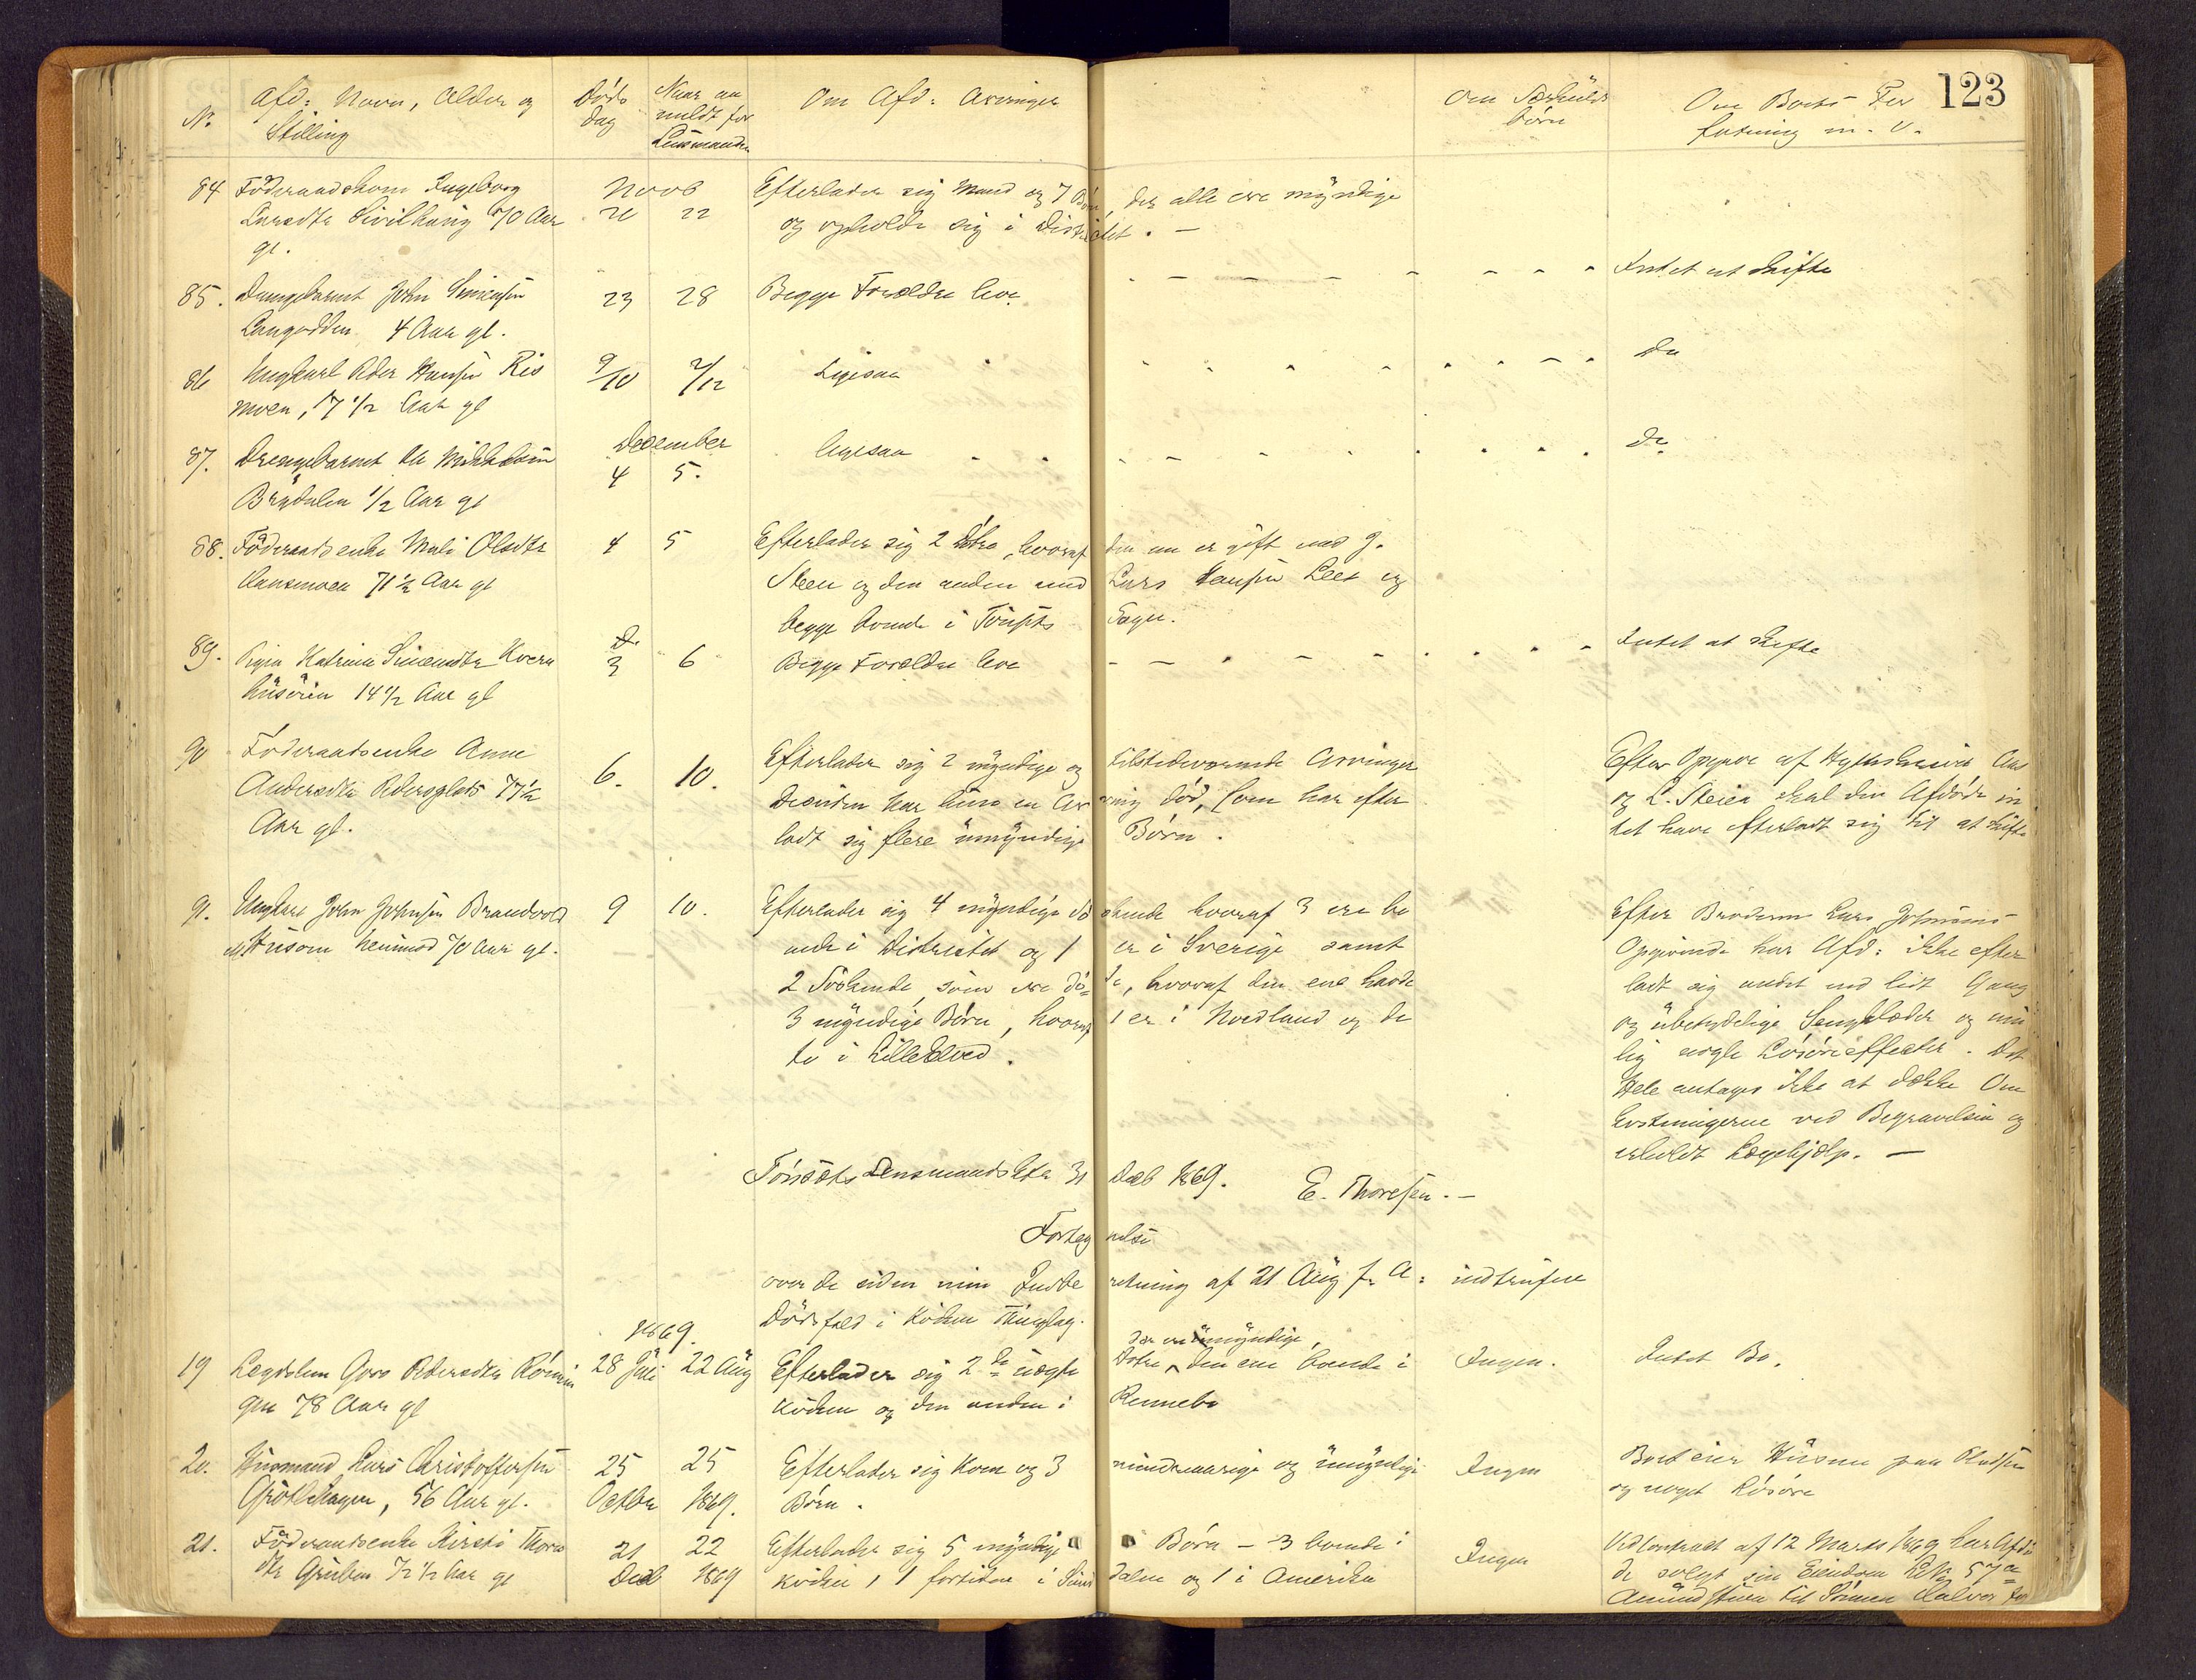 123
No.
Afd: Navn, Alder og
Stilling
Døds
Dag
Naar an
meldt for
Lensmanden
Om Afd: Arvinger
Om Særkulds
børn
Om Boets For
fatning m. v.
84 Föderaadskone Ingeborg
Larsdtr 70 Aar
gl.
Novb
21 22
Efterlader sig Mand og 7 Børn, der alle ere myndige
og opholde sig i Distrietet. —
85. Drengebarnet John Simensen
Langodden 4 Aar gl.
23 28
Begge Forældre leve
Intet at skifte
86 Ungkarl Peder Hansen Ris
moen, 17 1/2 Aar gl
9/10 2/12
Ligesaa
Do
87. Drengebarnet Ole Mikkelsen
Brydalen 1/2 Aar gl
December
4 5.
ligesaa
Do
88. Föderaadsenke Mali Olsdtr
Aansmoen 71 1/2 Aar gl
4 5
Efterlader sig 2 Døtre, hvoraf den ene er gift med J.
Steen og den anden med Lars Hansen Leet og
begge boende i Tönsets Sogn.
89. Pigen Katrina Simensdtr Kvern
husöien 14 1/2 Aar gl
Do
3 6
Begge Forældre leve
Intet at skifte
90 Föderaadsenke Anne
Andersdtr Pedersplads 77 1/2
Aar gl.
6. 10.
Efterlader sig 2 myndige og tilstedeværende Arvinger
Desuden har hun en Arving død, som har efter
ladt sig flere umyndige Børn.
Efter Opgave af
og L. Steien skal den Afdøde in
tet have efterladt sig til at skifte
91. Ungkarl John Johnsen Brandvold
Husom 70 Aar gl.
9 10.
Efterlader sig 4 myndige Sö skende hvoraf 3 ere bo
ende i Distriktet og 1 er i Sverige samt
2 Söskende, som ere dö= de, hvoraf den ene havde
3 myndige Børn, hvoraf 1 er i Nordland og de
to i Lille Elved.
Efter Broderen Lars Johnsens
Opgivende har Afd: ikke efter
ladt sig andet end lidt Gang
og ubetydelige Sengklæder og
lig nogle Lösöreeffecter. Det
Hele antages ikke at dække Om
kostningerne ved Begravelsen og
erholdt Lægehjælp. —
Tönsets Lensmandsktr 31 Decb 1869. E. Thoresen. —
Fortegnelse
over de siden min Indbe retning af 21 Aug f. A: indtrufne
Dödsfald i Kvikne Thinglag.
1869.
19 Lægdslem Goro Pedersdtr Röning
gen 78 Aar gl
28 Juli 22 Aug
Efterlader sig 2de uægte Døtre der ere umyndige, den ene boende i
Kvikne og den anden i Rennebo
Ingen.
Intet Bo.
20. Husmand Lars Christoffersen
Gröthhagen, 56 Aar gl.
25 25
Octbr 1869.
Efterlader sig Kone og 3 mindreaarige og umyndige
Børn.
Ingen
Boet eier Husene paa Pladsen
og noget Lösöre
21. Föderaadsenke Kirsti Thors
dtr Gruben 72 1/2 Aar gl
21 22
Decb 1869
Efterlader sig 5 myndige Börn — 3 boende i
Kvikne, 1 fortiden i Sund dalen og 1 i Amerika
Ingen
Ved Contract af 12 Marts 1869 har Afdö
de solgt sin Eiendom LNo 57a
Amundstuen til Sönnen Halvor for